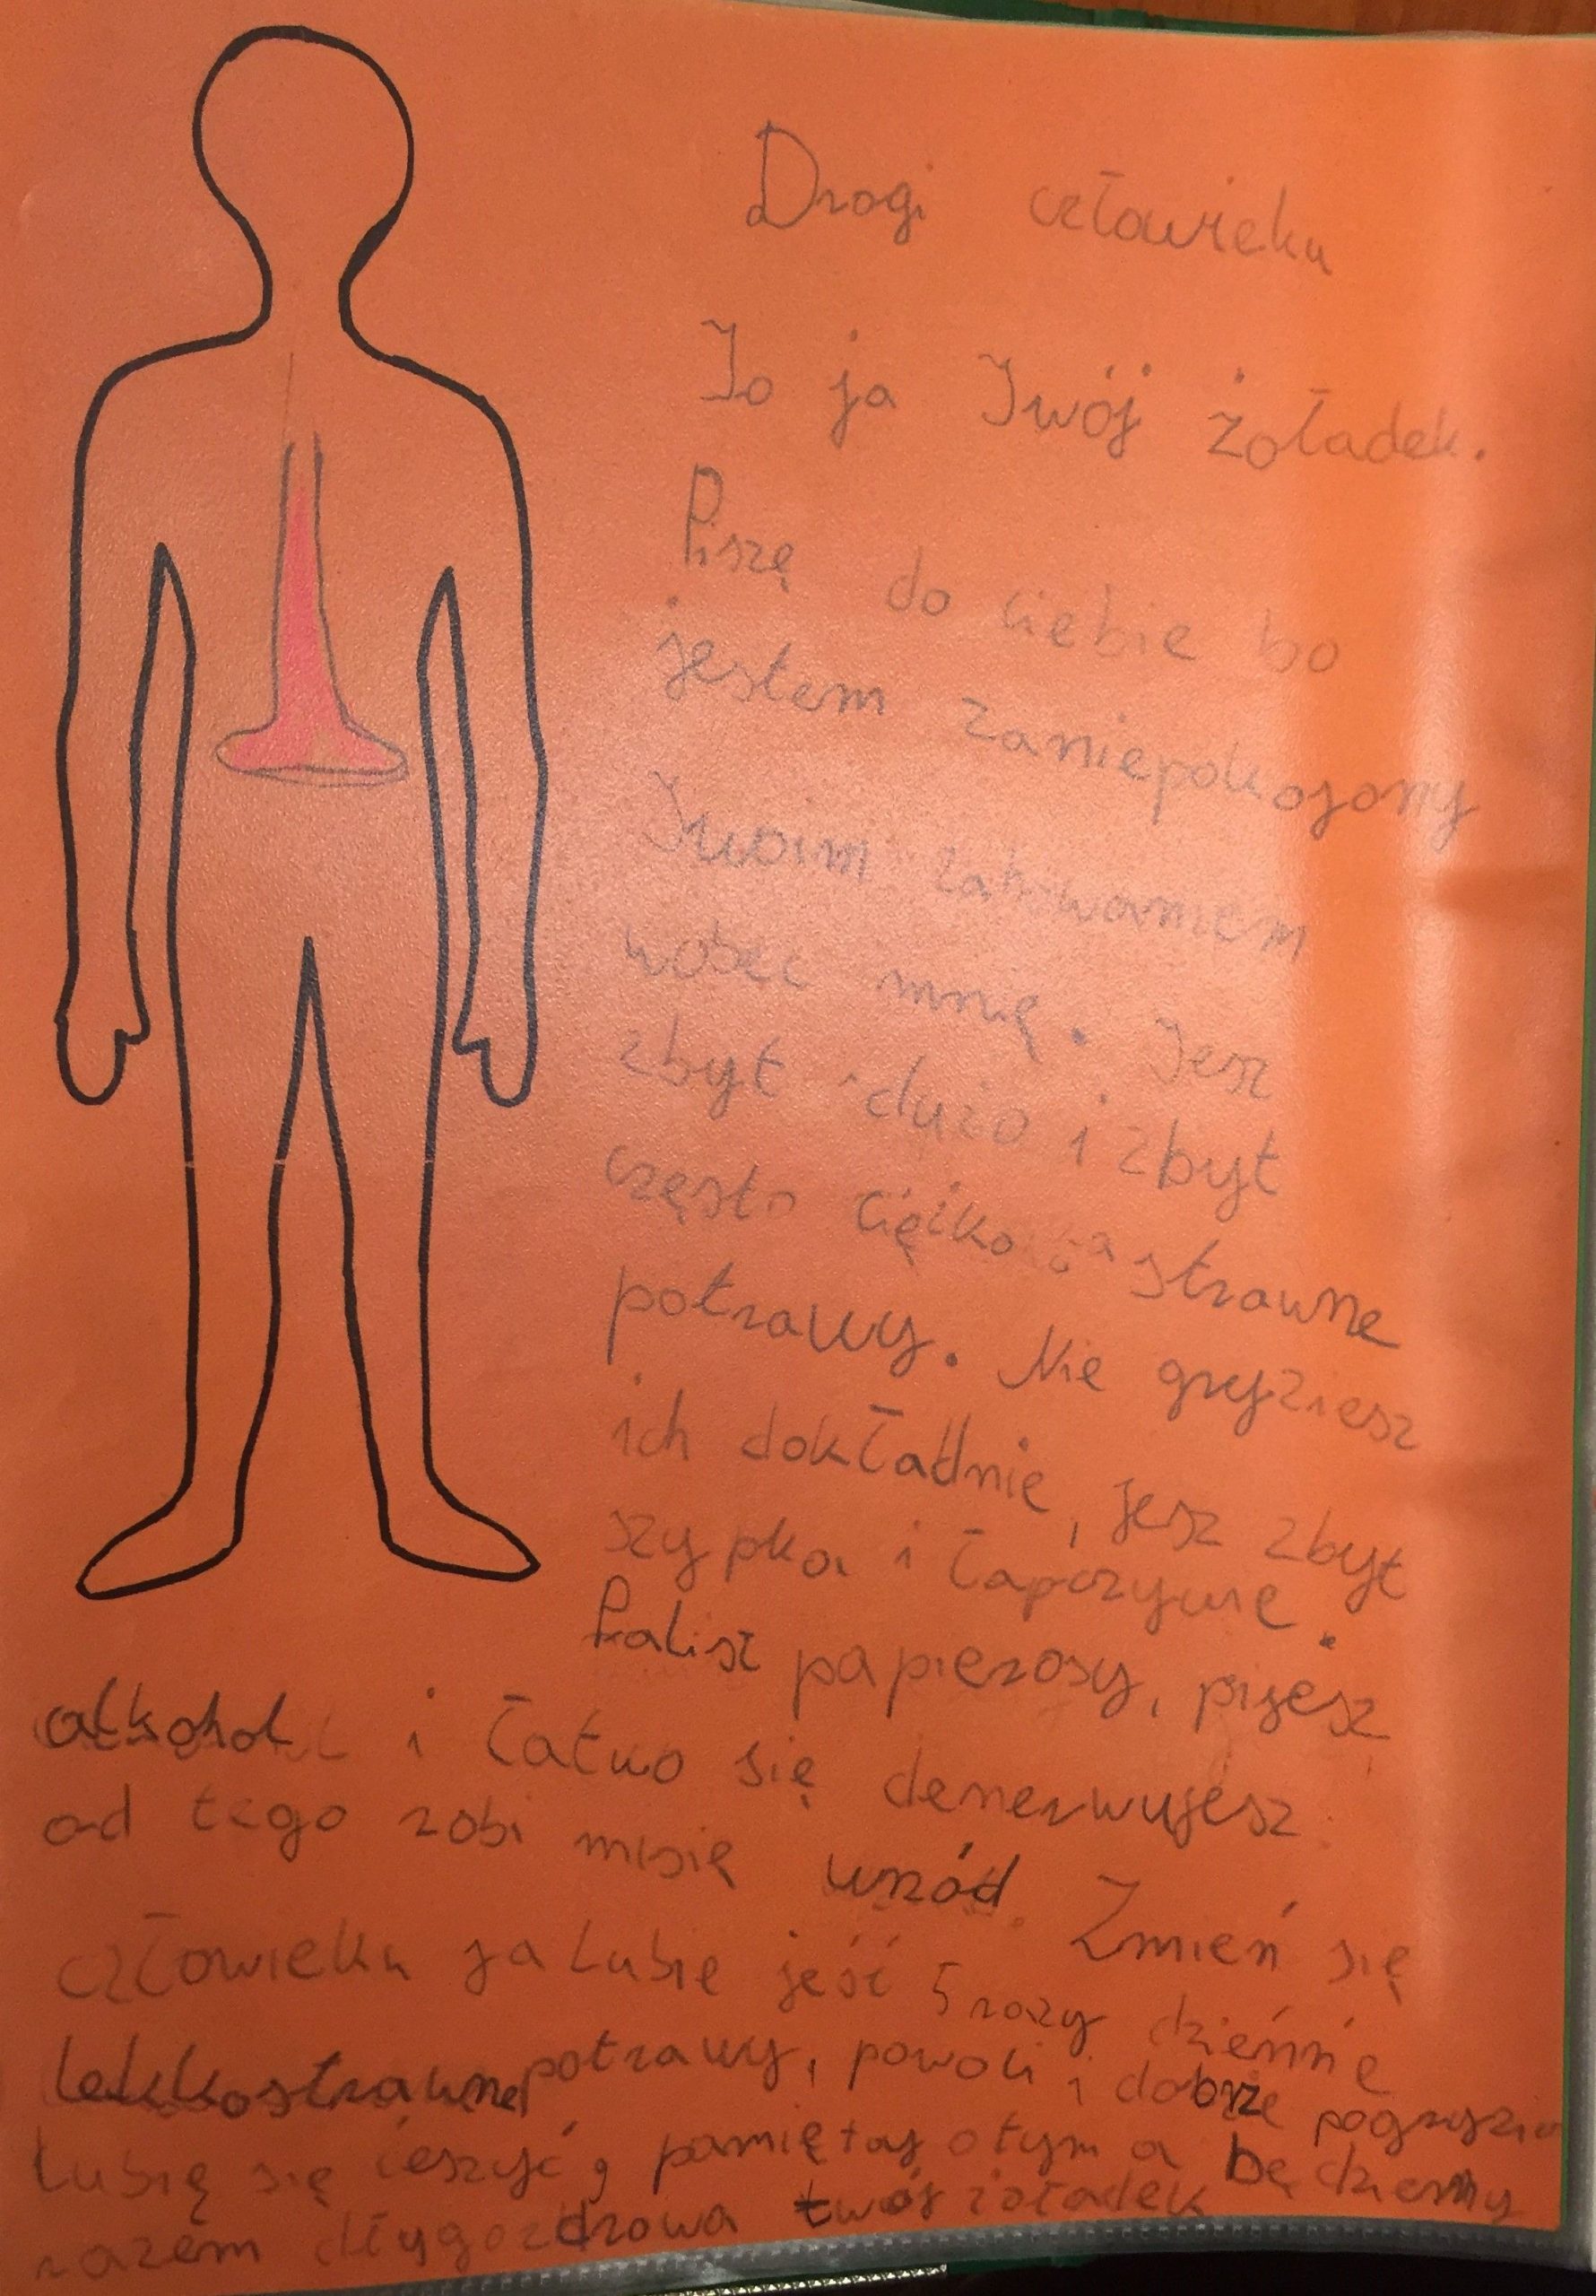 Drogi człowieku
To ja Twój żoładek.
Piszę do ciebie bo
jestem zaniepokojony
Twoim zahowaniem
wobec mnię. Jesz
zbyt dużo i zbyt
często ciężko strawne
potrawy. Nie gryziesz
ich dokładnie, jesz zbyt
szypko i łapczywie.
Palisz papierosy, pijesz
alkohol i łatwo się denerwujesz
od tego robi misię wrzód. Zmień się
człowieku ja lubię jeść 5 razy dzieńnie
lekkostrawne potrawy, powoli i dobrze
lubię się ćeszyć, pamiętaj otym a będziemy
razem dłygo zdrowa twój żoładek